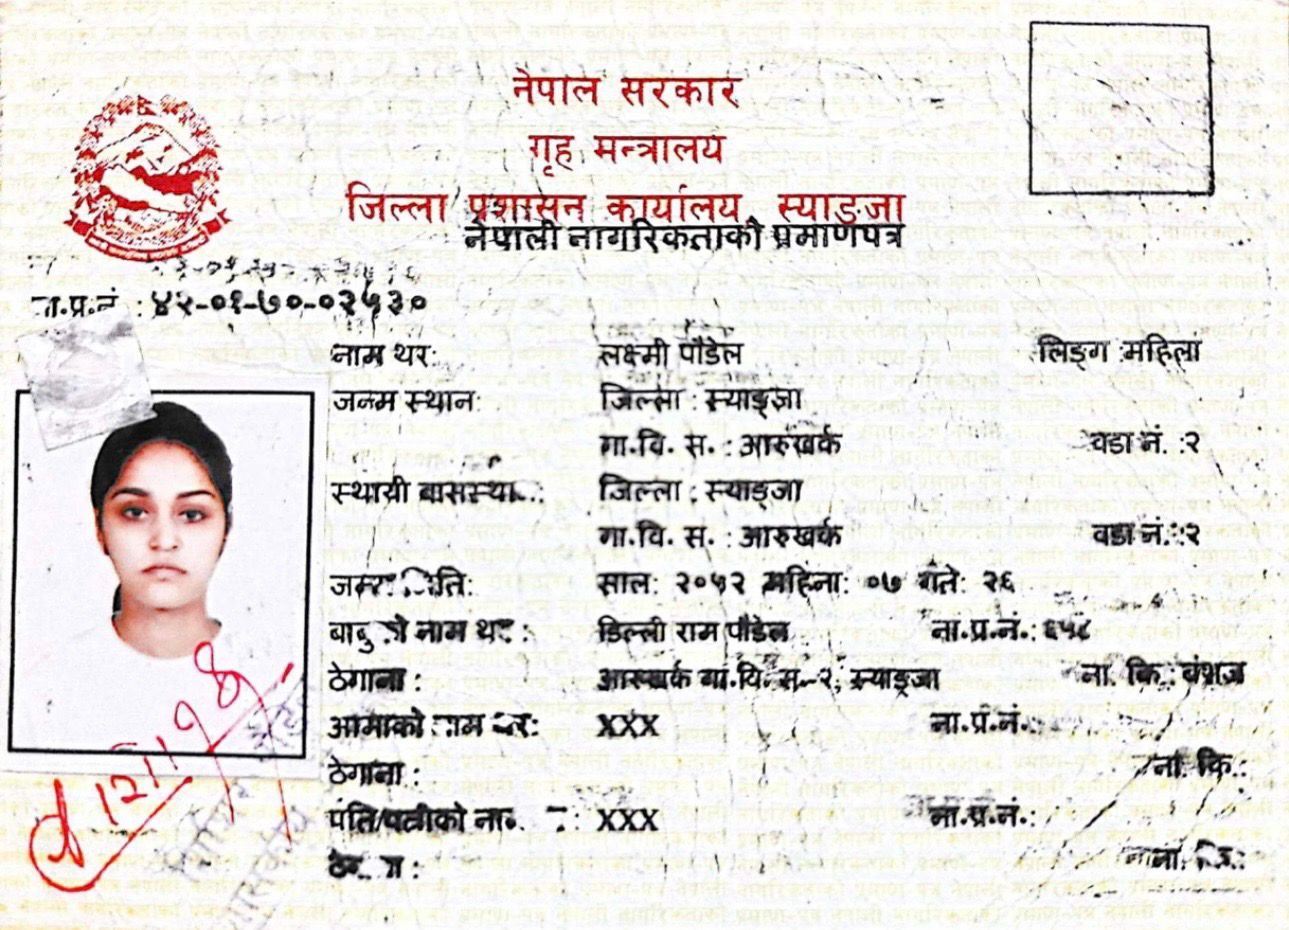 नेपाल सरकार
गृह मन्त्रालय
जिल्ला प्रशासन कार्यालय, स्याङ्जा
नेपाली नागरिकताको प्रमाणपत्र
ना.प्र.नं. : ४२-०१-७०-०२५३०
नाम थर: लक्ष्मी पौडेल लिङ्ग :महिला
जन्म स्थान: जिल्ला : स्याङ्जा
गा.वि. स. : आरुखर्क वडा नं. :२
स्थायी बासस्था जिल्ला : स्याङ्जा
गा.वि. स. : आरुखर्क वडा नं. :२
साल: २०५२ महिना: ०७ गते: २६
नाम थर : डिल्ली राम पौडेल ना.प्र.नं.: ६५८
ठेगाना : आरुखर्क गा.वि. स.-२, स्याङ्जा ना. कि.: वंशज
आमाको नाम थर: XXX ना.प्र.नं.
ठेगाना : ना. कि.:
पति/पत्नीको XXX ना.प्र.नं.: